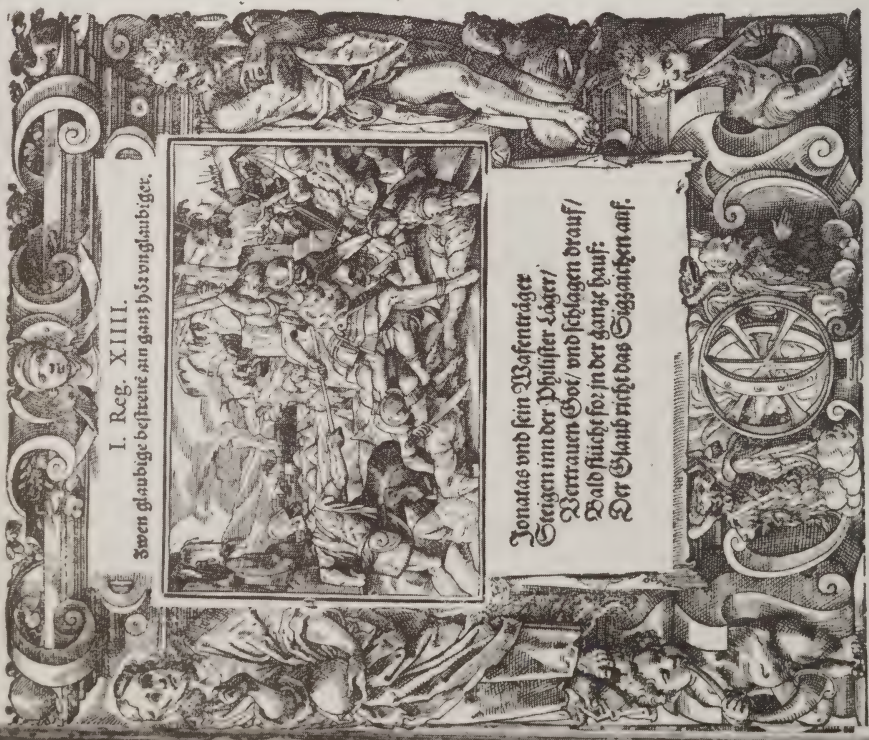 I. Reg. XIIII.
Zwen glaubige bestreitē ain ganz hör vnglaubiger.
Jonatas vnd sein Wafenträger
Steigen inn der Philister Läger/
Vertrauen Got/ vnd schlagen drauf/
Bald flücht for jn der ganze hauf:
Der Glaub richt das Sigzaichen auf.